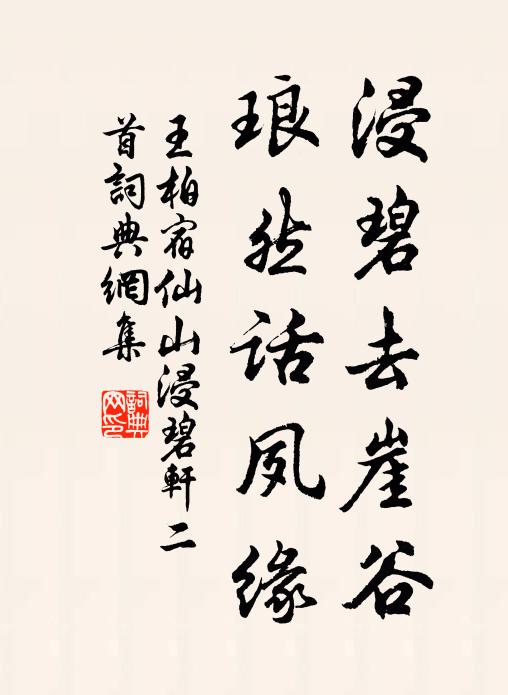 浸碧去崖谷
琅然話夙緣
王柏宿仙山浸碧軒二
首詞典網集
詞典網印